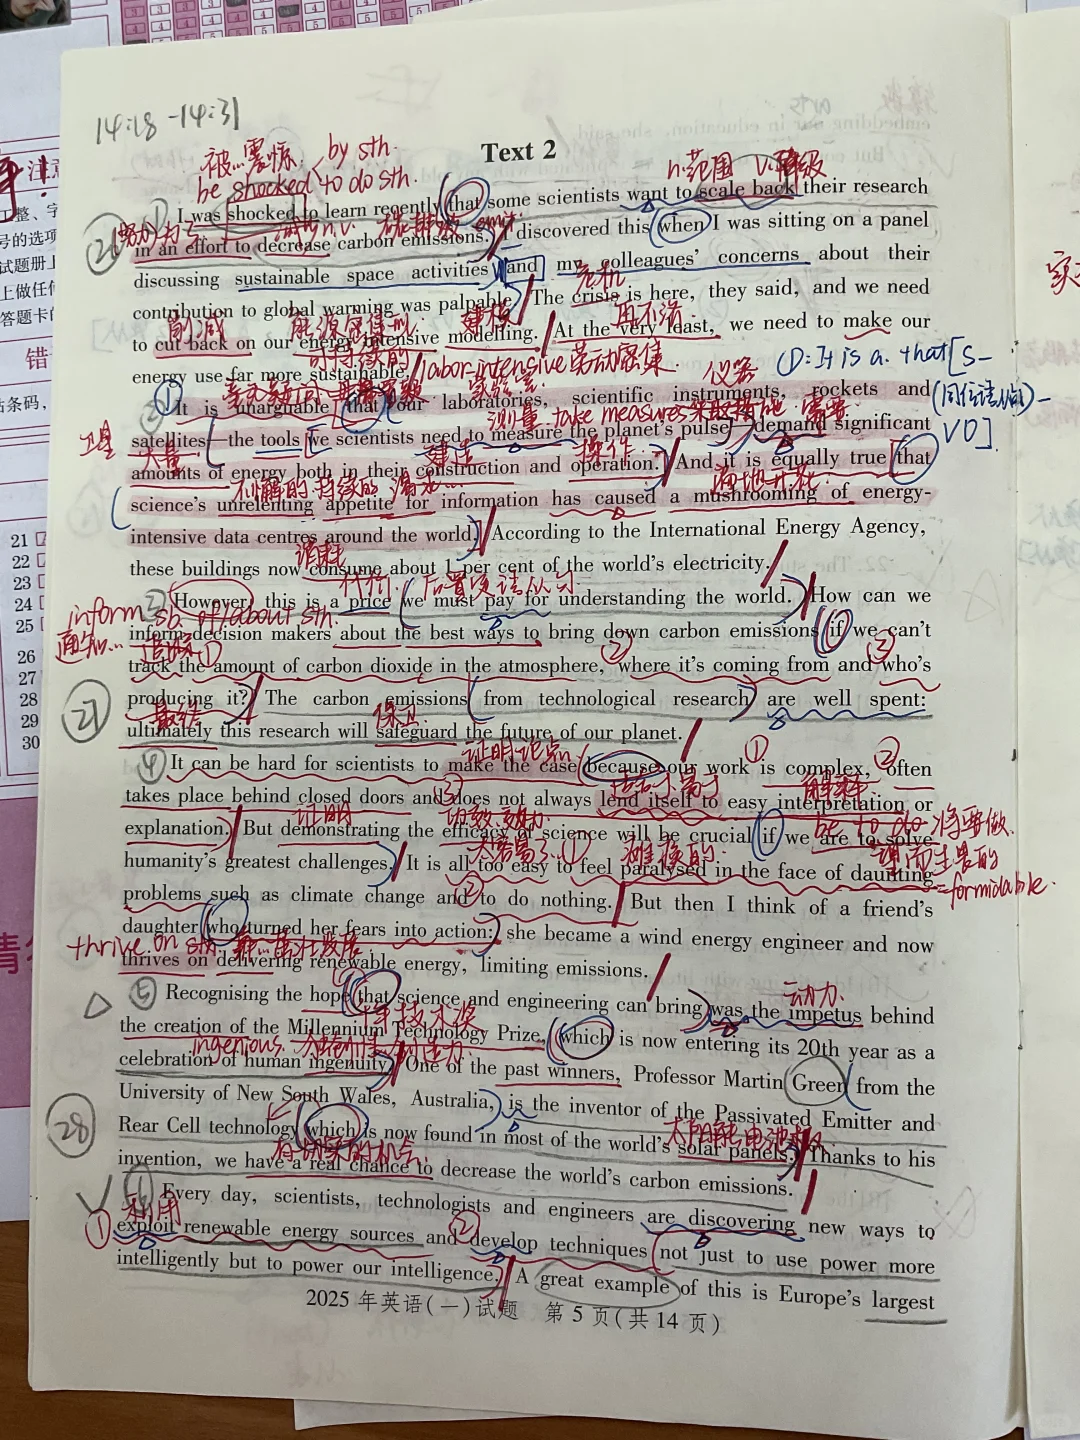 14:18 -14:31
Text 2
被…震惊 by sth.
be shocked to do sth.
n.范围 v.降级
I was shocked to learn recently that some scientists want to scale back their research
in an effort to decrease carbon emissions. I discovered this when I was sitting on a panel
discussing sustainable space activities and my colleagues' concerns about their
危机
contribution to global warming was palpable. The crisis is here, they said, and we need
削减 能源密集型 建模 再不济
to cut back on our energy-intensive modelling. At the very least, we need to make our
可持续的 labor-intensive 劳动密集
energy use far more sustainable.
仪器 ①: It is a. that [S-
It is unarguable that our laboratories, scientific instruments, rockets and
(同位语从句)-
测量 take measures 采取措施 需要
VO].
卫星
satellites—the tools we scientists need to measure the planet's pulse—demand significant
大量 建造 操作
amounts of energy both in their construction and operation. And it is equally true that
不懈的 持续的 渴望… 遍地开花
science's unrelenting appetite for information has caused a mushrooming of energy-
intensive data centres around the world. According to the International Energy Agency,
消耗
these buildings now consume about 1 per cent of the world's electricity.
代价 后置定语从句
However, this is a price we must pay for understanding the world. How can we
inform sb. of/about sth.
通知…
inform decision makers about the best ways to bring down carbon emissions if we can't
追踪 ① ② ③
track the amount of carbon dioxide in the atmosphere, where it's coming from and who's
27
producing it? The carbon emissions from technological research are well spent:
最终 保卫
ultimately this research will safeguard the future of our planet.
证明论点 ① ②
④ It can be hard for scientists to make the case because our work is complex, often
③ 适合于 易于 解释
takes place behind closed doors and does not always lend itself to easy interpretation or
证明 功效,效力 be to do 将要做
explanation. But demonstrating the efficacy of science will be crucial if we are to solve
太容易了… ① 瘫痪的
humanity's greatest challenges. It is all too easy to feel paralysed in the face of daunting
=formidable.
problems such as climate change and to do nothing. But then I think of a friend's
daughter who turned her fears into action: she became a wind energy engineer and now
thrive on sth.
thrives on delivering renewable energy, limiting emissions.
动力
⑤ Recognising the hope that science and engineering can bring was the impetus behind
千禧技术奖
the creation of the Millennium Technology Prize, which is now entering its 20th year as a
ingenious.
celebration of human ingenuity. One of the past winners, Professor Martin Green from the
University of New South Wales, Australia, is the inventor of the Passivated Emitter and
28
太阳能电池板
Rear Cell technology which is now found in most of the world's solar panels. Thanks to his
有切实的机会
invention, we have a real chance to decrease the world's carbon emissions.
利用
Every day, scientists, technologists and engineers are discovering new ways to
① ②
exploit renewable energy sources and develop techniques not just to use power more
intelligently but to power our intelligence. A great example of this is Europe's largest
2025 年英语(一)试题 第 5 页(共 14 页)
21
22
23
24
25
26
27
28
29
30